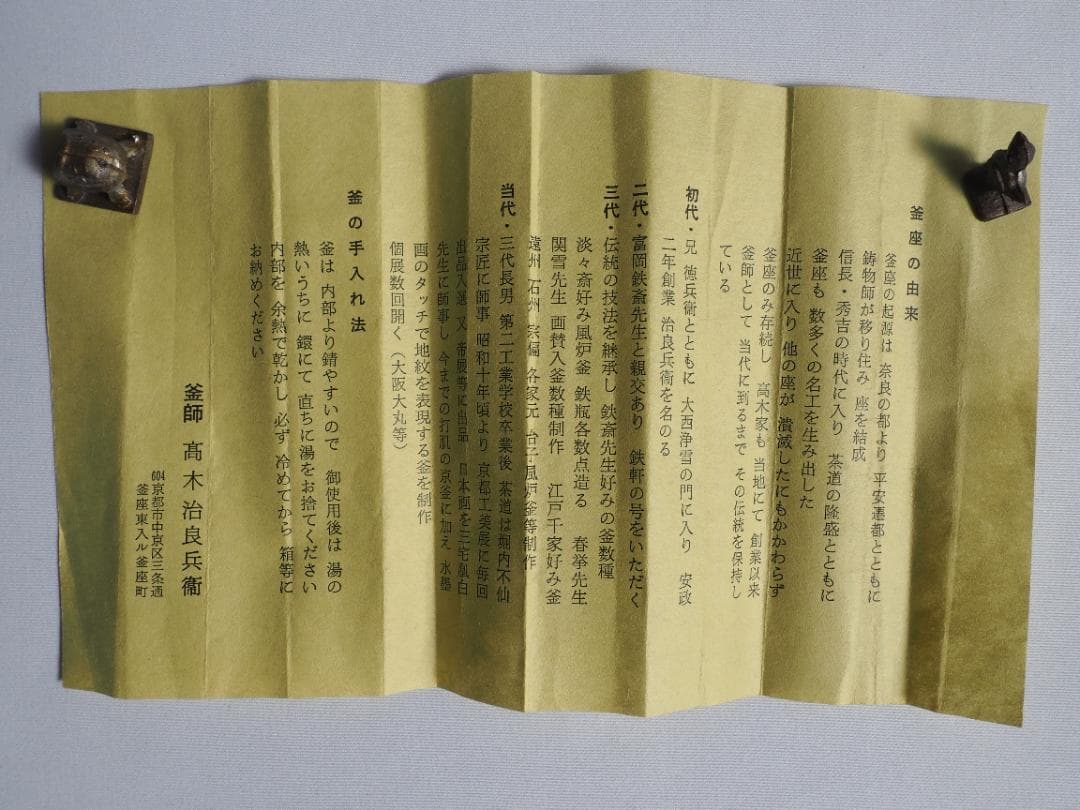 釜座の由来
釜座の起源は 奈良の都より 平安遷都とともに
鋳物師が移り住み 座を結成
信長・秀吉の時代に入り 茶道の隆盛とともに
釜座も 数多くの名工を生み出した
近世に入り 他の座が 潰滅したにもかかわらず
釜座のみ存続し 高木家も 当地にて 創業以来
釜師として 当代に到るまで その伝統を保持し
ている
初代・兄 徳兵衛とともに 大西浄雪の門に入り 安政
二年創業 治良兵衛を名のる
二代・富岡鉄斎先生と親交あり 鉄軒の号をいただく
三代・伝統の技法を継承し 鉄斎先生好みの釜数種
淡々斎好み風炉釜 鉄瓶各数点造る 春挙先生
関雪先生 画賛入釜数種制作 江戸千家好み釜
遠州 石州 宗徧 各家元 台子風炉釜等制作
当代・三代長男 第二工業学校卒業後 茶道は堀内不仙
宗匠に師事 昭和十年頃より 京都工美展に毎回
出品入選 又 帝展等に出品 日本画を三宅凰白
先生に師事し 今までの打肌の京釜に加え 水墨
画のタッチで地紋を表現する釜を制作
個展数回開く（大阪大丸等）
釜の手入れ法
釜は 内部より錆やすいので 御使用後は 湯の
熱いうちに 鐶にて 直ちに湯をお捨てください
内部を 余熱で乾かし 必ず 冷めてから 箱等に
お納めください
釜師 髙木治良兵衞
604京都市中京区三条通
釜座東入ル釜座町